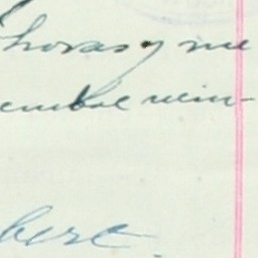 horas y me
embre vein-
bert.